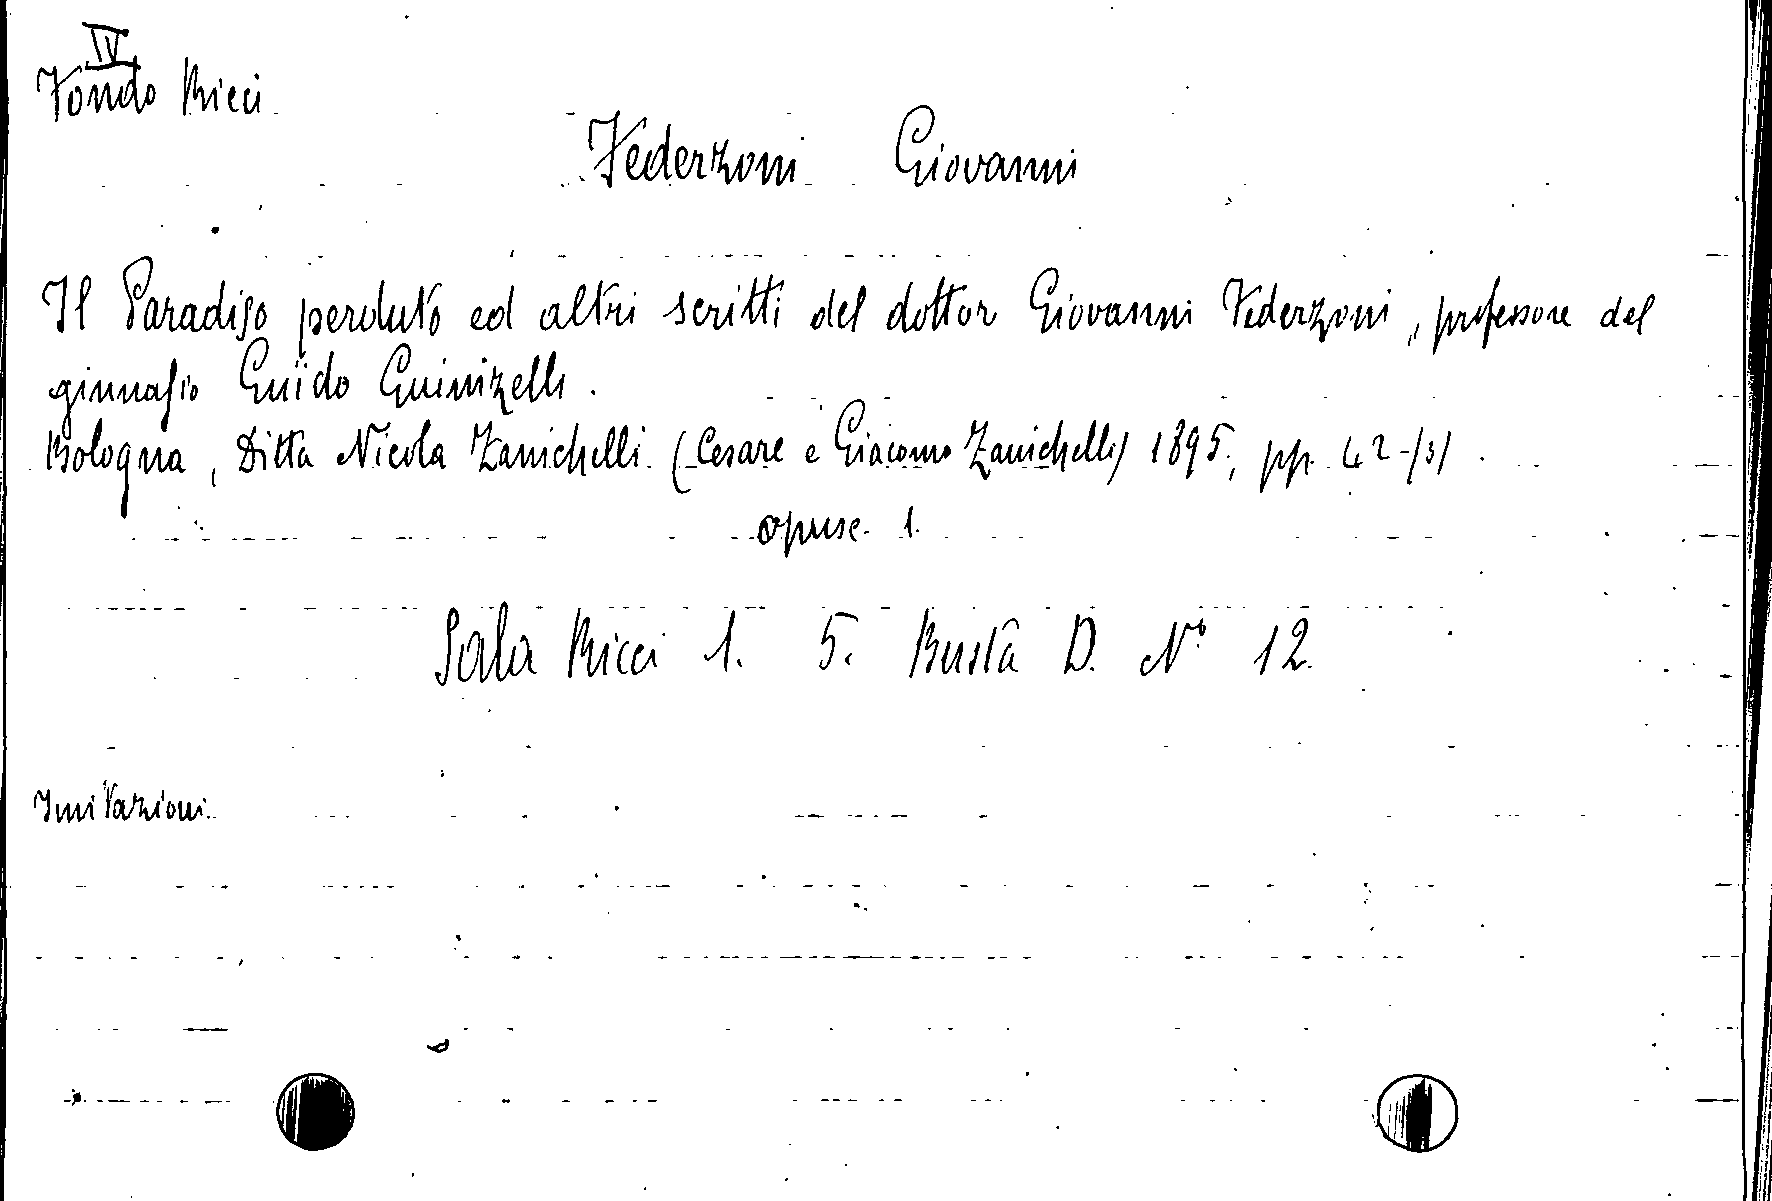 IV
Fondo Ricci
Federzoni Giovanni
Il Paradiso perduto ed altri scritti del dottor Giovanni Federzoni, professore del
ginnasio Guido Guinizelli.
Bologna, Ditta Nicola Zanichelli (Cesare e Giacomo Zanichelli) 1895, pp. 42-/3/
opusc. 1.
Sala Ricci 1. 5. Busta D. N° 12.
Imitazioni.